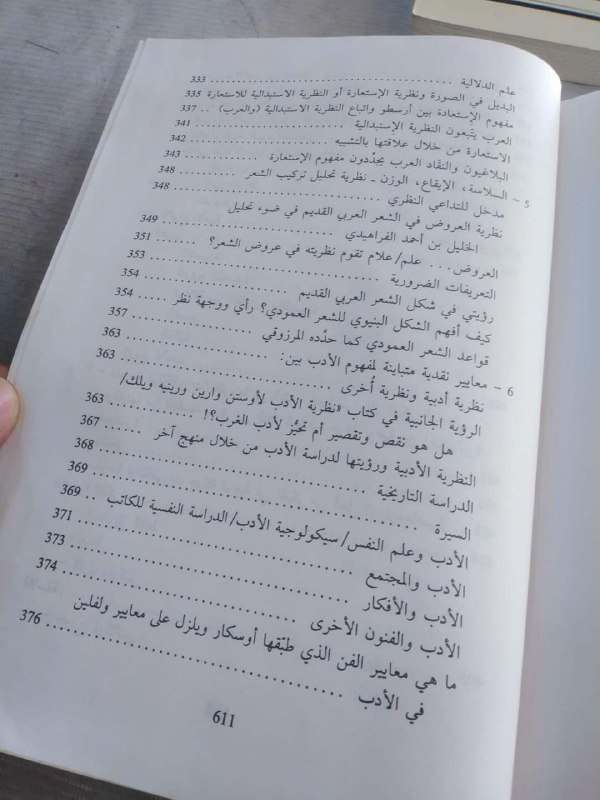 علم الدلالية ........ 333
البديل في الصورة ونظرية الإستعارة أو النظرية الاستبدالية للاستعارة 335
مفهوم الإستعادة بين أرسطو واتباع النظرية الاستبدالية (والعرب) .. 337
العرب يتّبعون النظرية الإستبدالية ........ 341
الاستعارة من خلال علاقتها بالتشبيه ........ 342
البلاغيون والنقّاد العرب يجدّدون مفهوم الإستعارة ........ 343
5 - السلاسة، الإيقاع، الوزن - نظرية تحليل تركيب الشعر ...... 348
مدخل للتداعي النظري ........ 348
نظرية العروض في الشعر العربي القديم في ضوء تحليل
الخليل بن أحمد الفراهيدي ........ 349
العروض... علم/علام تقوم نظريته في عروض الشعر؟ ...... 351
التعريفات الضرورية ........ 353
رؤيتي في شكل الشعر العربي القديم ........ 354
كيف أفهم الشكل البنيوي للشعر العمودي؟ رأي ووجهة نظر ..... 354
قواعد الشعر العمودي كما حدّده المرزوقي ........ 357
6 - معايير نقدية متباينة لمفهوم الأدب بين: ........ 363
نظرية أدبية ونظرية أُخرى ........ 363
الرؤية الجانبية في كتاب «نظرية الأدب لأوستن وارين ورينيه ويلك/
هل هو نقص وتقصير أم تحيُّز لأدب الغرب؟! ........ 363
النظرية الأدبية ورؤيتها لدراسة الأدب من خلال منهج آخر ...... 367
الدراسة التاريخية ........ 368
السيرة ........ 369
الأدب وعلم النفس/سيكولوجية الأدب/الدراسة النفسية للكاتب .. 369
الأدب والمجتمع ........ 371
الأدب والأفكار ........ 373
الأدب والفنون الأخرى ........ 374
ما هي معايير الفن الذي طبّقها أوسكار ويلزل على معايير ولفلين
في الأدب ........ 376
611